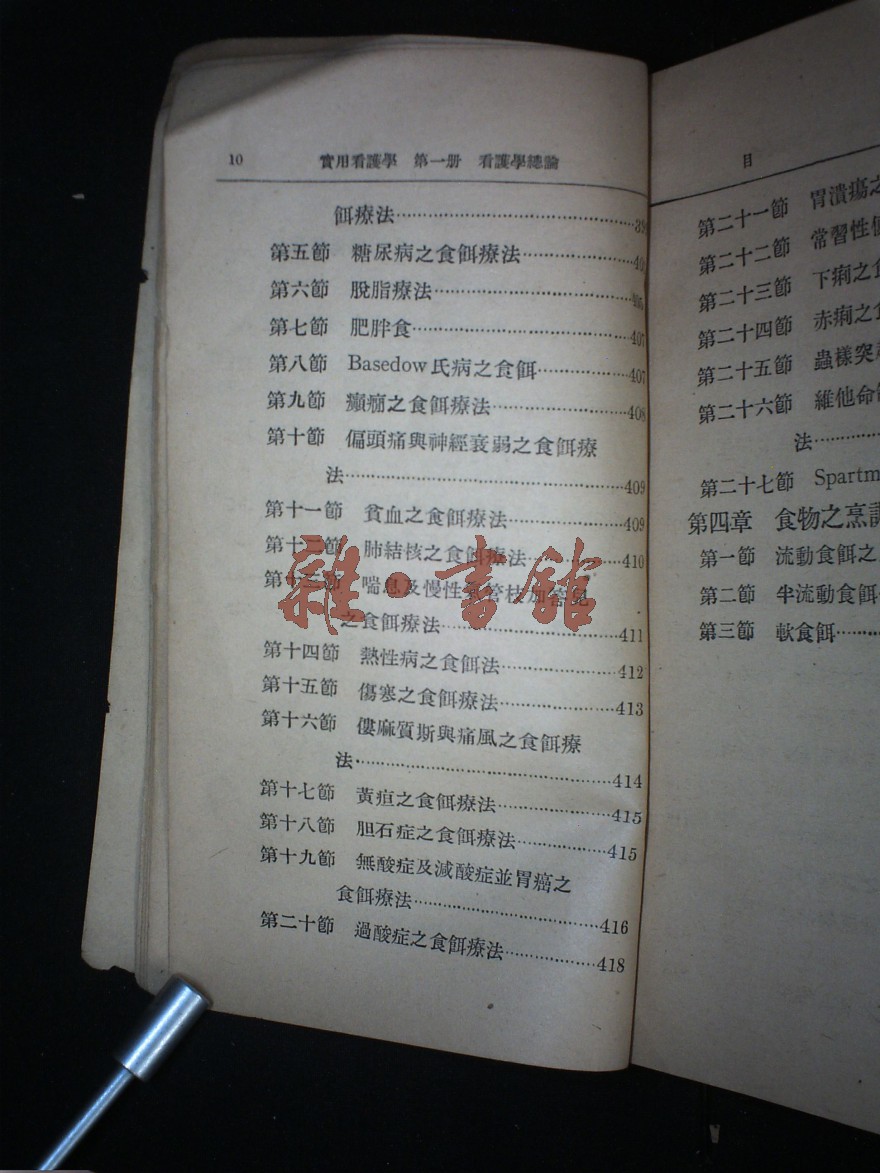 10 實用看護學 第一册 看護學總論
餌療法
第五節 糖尿病之食餌療法
第六節 脫脂療法
第七節 肥胖食 407
第八節 Basedow氏病之食餌 407
第九節 癲癇之食餌療法 408
第十節 偏頭痛與神經衰弱之食餌療
法 409
第十一節 貧血之食餌療法 409
第十二節 肺結核之食餌療法 410
第十三節 喘息及慢性氣管枝加答兒
之食餌療法 411
第十四節 熱性病之食餌法 412
第十五節 傷寒之食餌療法 413
第十六節 僂麻質斯與痛風之食餌療
法 414
第十七節 黃疸之食餌療法 415
第十八節 胆石症之食餌療法 415
第十九節 無酸症及減酸症並胃癌之
食餌療法 416
第二十節 過酸症之食餌療法 418
雜·書館
目
第二十一節 胃潰瘍之
第二十二節 常習性便
第二十三節 下痢之食
第二十四節 赤痢之食
第二十五節 蟲樣突
第二十六節 維他命
法
第二十七節 Spartm
第四章 食物之烹調
第一節 流動食餌之
第二節 半流動食餌
第三節 軟食餌